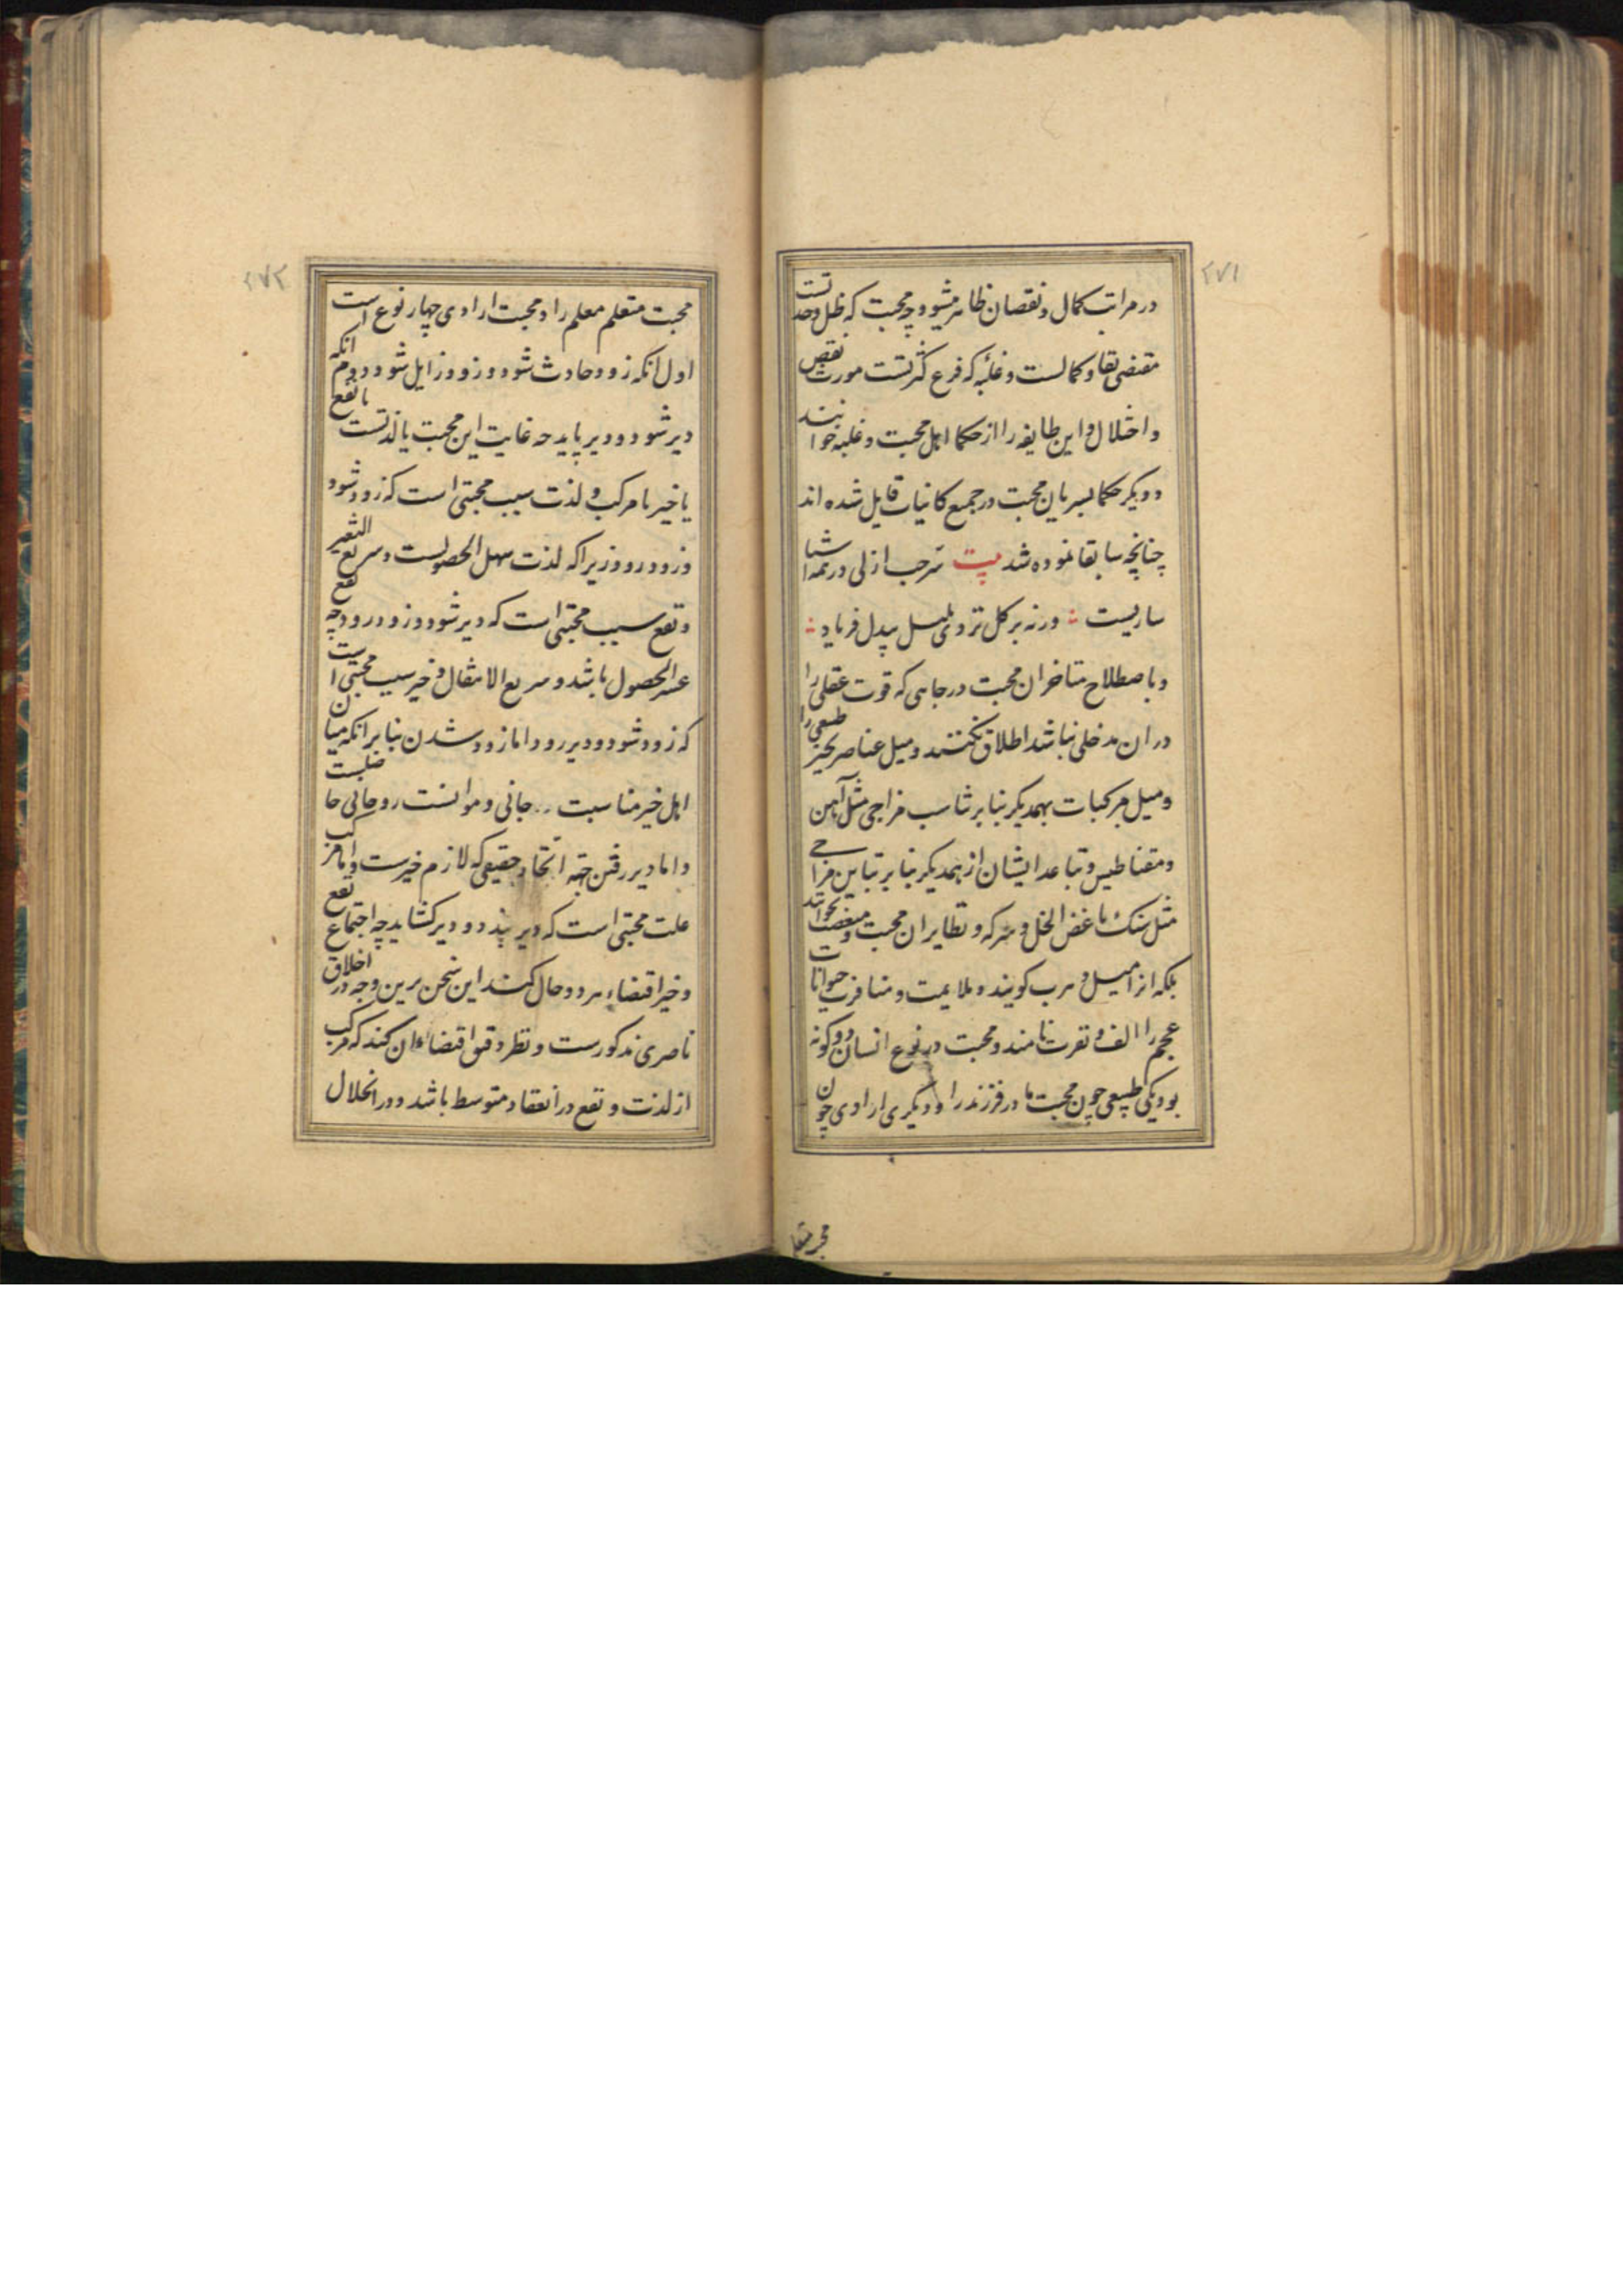 ۲۷۱
در مراتب کمال و نقصان ظاهر میشود چه محبت که ظل وحدتست
مقتضی بقا و کمالست و غلبه که فرع کثرتست مورث نقص
و اختلال و این طایفه را از حکما اهل محبت و غلبه خوانند
و دیگر حکما بسریان محبت در جمیع کاینات قایل شده اند
چنانچه سابقا نموده شد بیت سر حب ازلی در همه اشیا
ساریست ورنه بر گل نزدی بلبل بیدل فریاد
و باصطلاح متاخران محبت در جاهی که قوت عقلی را
در ان مدخلی نباشد اطلاق نکنند و میل عناصر بحیز طبیعی را
و میل مرکبات بهمدیگر بنابر تناسب مزاجی مثل آهن
و مقناطیس و تباعد ایشان از همدیگر بنابر تباین مزاجی
مثل سنک باغض الخل و سرکه و نظایر ان محبت و مبغضت نخوانند
بلکه انرا میل و هرب گویند و ملایمت و منافرت حیوانات
عجم را الف و نفرت نامند و محبت در نوع انسان دو گونه
بود یکی طبیعی چون محبت مادر فرزند را و دیگری ارادی چون
۲۷۲
محبت متعلم معلم را و محبت ارادی چهار نوع است
اول انکه زود حادث شود و زود زایل شود دوم انکه
دیر شود و دیر پاید چه غایت این محبت یا لذتست یا نفع
یا خیر یا مرکب و لذت سبب محبتی است که زود شود
و زود رود زیرا که لذت سهل الحصولست و سریع التغیر
و نفع سبب محبتی است که دیر شود و زود رود چه نفع
عسر الحصول باشد و سریع الانتقال و خیر سبب محبتی است
که زود شود و دیر رود اما زود شدن بنابر انکه میان
اهل خیر مناسبت جانی و موانست روحانی حاصلست
و اما دیر رفتن جهة اتحاد حقیقی که لازم خیرست و اما مرکب
علت محبتی است که دیر بندد و دیر کشاید چه اجتماع نفع
و خیر اقتضاء هر دو حال کند این سخن برین وجه در اخلاق
ناصری مذکورست و نظر دقیق اقتضاء ان کند که مرکب
از لذت و نفع در انعقاد متوسط باشد و در انحلال